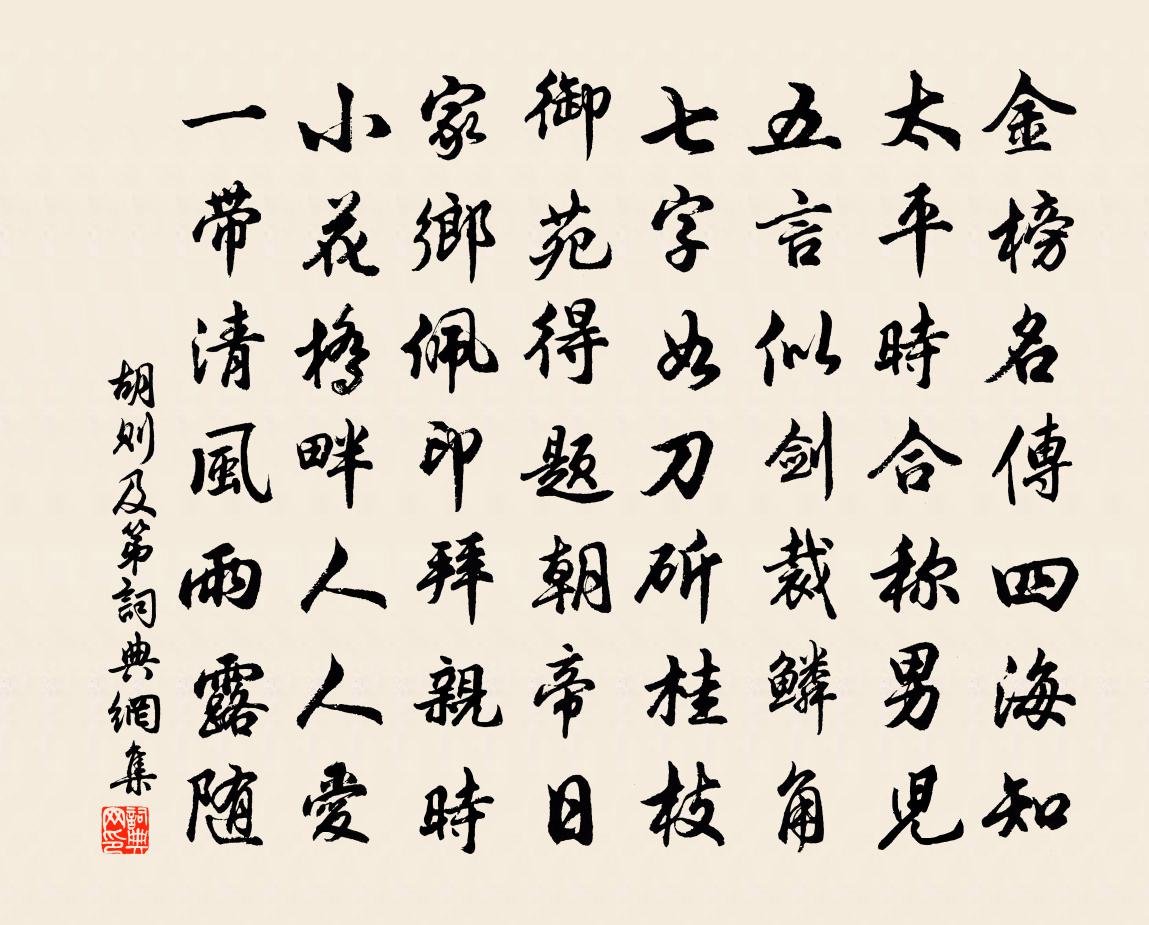 金榜名傳四海知
太平時合称男兒
五言似劍裁鱗角
七字如刀斫桂枝
御苑得題朝帝日
家鄉佩印拜親時
小花橋畔人人愛
一帶清風雨露随
胡則及第詞典網集
詞典网印